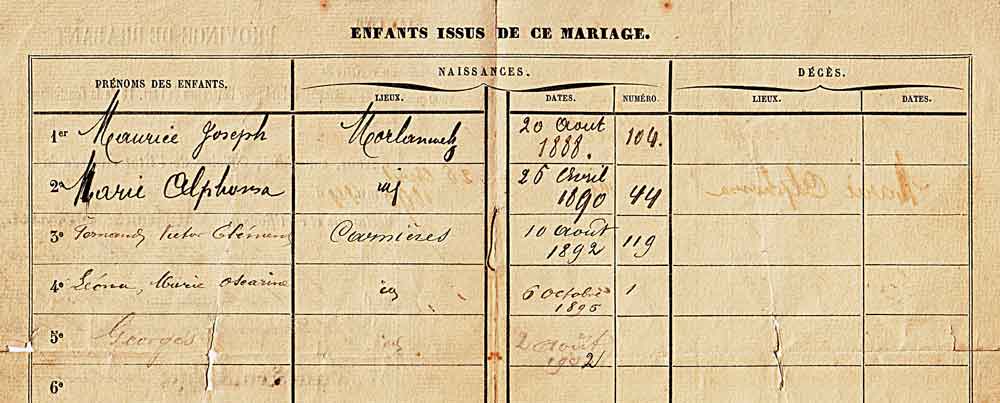 ENFANTS ISSUS DE CE MARIAGE.
PRÉNOMS DES ENFANTS. NAISSANCES. DÉCÈS.
LIEUX. DATES. NUMÉRO. LIEUX. DATES.
1er Maurice Joseph Morlanwelz 20 Août 1888. 104.
2e Marie Alphonsa id 26 Avril 1890 44
3e Fernand Victor Clément Carnières 10 Août 1892 119
4e Léona, Marie Oscarine id 6 Octobre 1896 1
5e Georges id 2 Août 1902
6e